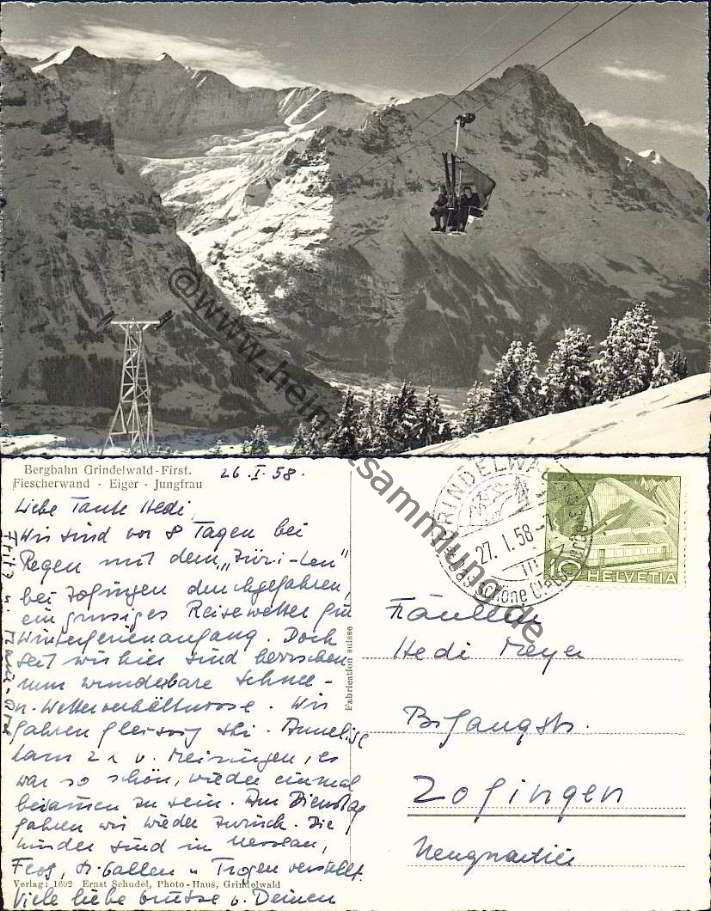 ©www.heimatsammlung.de
Bergbahn Grindelwald-First.
Fiescherwand · Eiger · Jungfrau
26.I.58.
Liebe Tante Hedi,
Wir sind vor 8 Tagen bei
Regen mit dem „Züri-Leu"
bei Zofingen durchgefahren,
ein grusiges Reisewetter zum
Winterferienanfang. Doch
seit wir hier sind herrschen
nun wunderbare Schnee-
u. Wetterverhältnisse. Wir
fahren fleissig Ski. Annelise
kam v. Meiringen, es
war so schön, wieder einmal
beisammen zu sein. Am Dienstag
fahren wir wieder zurück. Die
Kinder sind in
St. Gallen u. Trogen verteilt.
Viele liebe Grüsse v. Deinen
Verlag: 1692 Ernst Schudel, Photo-Haus, Grindelwald
Fabrication suisse
GRINDELWALD
27.I.58
das schöne Gletscherdorf
10 HELVETIA
Fräulein
Hedi Meyer
Bifangstr.
Zofingen